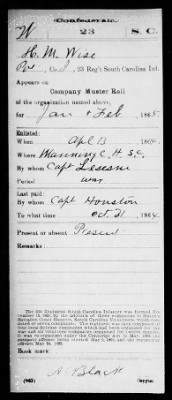 Confederate.
W 23 S. C.
H. M. Wise
Pvt, Co. I, 23 Reg't South Carolina Inf.
Appears on
Company Muster Roll
of the organization named above,
for Jan & Feb, 1865.
Enlisted:
When Apl 13, 1864.
Where Manning C. H. S.C.
By whom Capt Lesesne
Period war
Last paid:
By whom Capt Houston
To what time Oct. 31, 1864.
Present or absent Present
Remarks:
Book mark:
A. Black
Copyist.